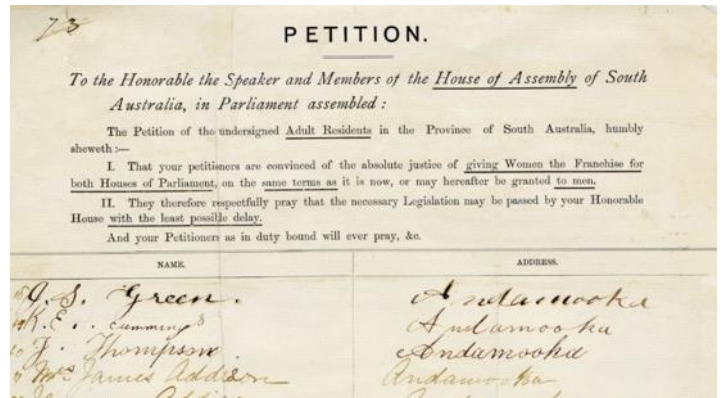 73
PETITION.
To the Honorable the Speaker and Members of the House of Assembly of South
Australia, in Parliament assembled :
The Petition of the undersigned Adult Residents in the Province of South Australia, humbly
sheweth :—
I. That your petitioners are convinced of the absolute justice of giving Women the Franchise for
both Houses of Parliament, on the same terms as it is now, or may hereafter be granted to men.
II. They therefore respectfully pray that the necessary Legislation may be passed by your Honorable
House with the least possible delay.
And your Petitioners as in duty bound will ever pray, &c.
NAME. ADDRESS.
S. Green. Andamooka
K. E. Cummings Andamooka
J. Thompson. Andamooka
Mrs James Addison Andamooka